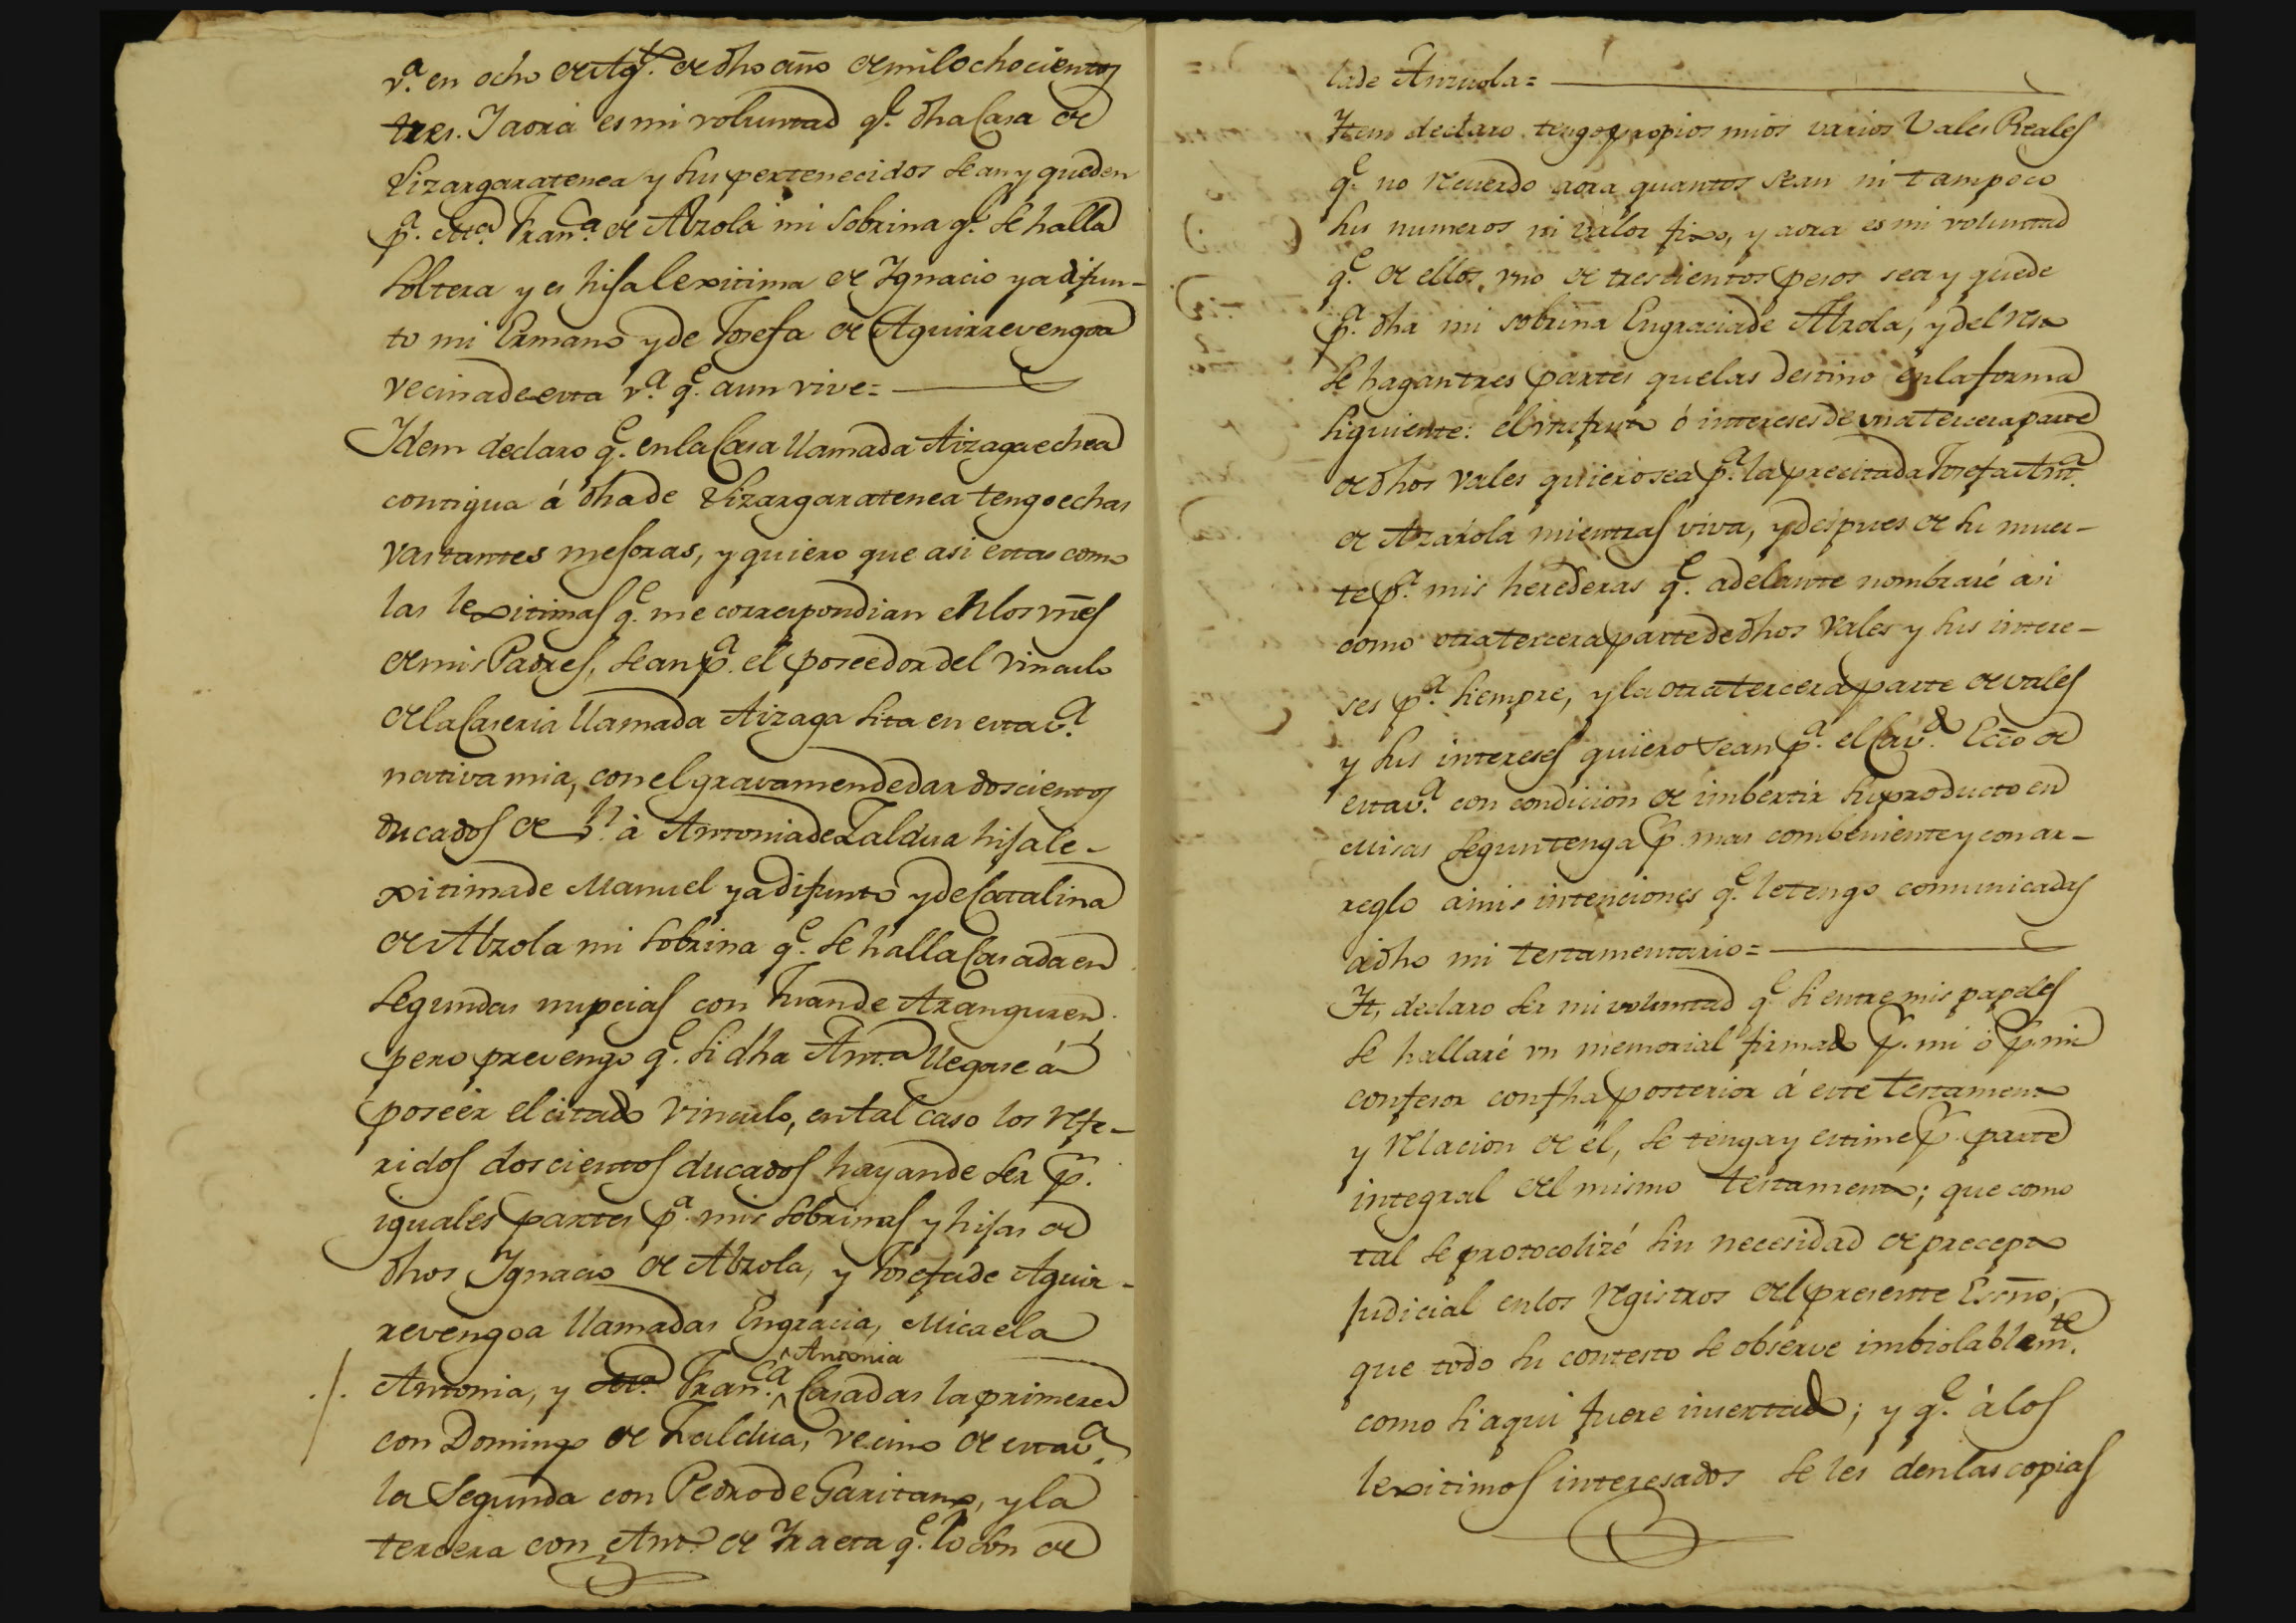 v.ª en ocho de Ag.to de dho año de mil ochocientos
tres. Y aora es mi voluntad q.e dha Casa de
Lizargaratenea y sus pertenecidos sean y queden
p.ª M.ª Fran.ca de Abrola mi sobrina q.e se halla
soltera y es hija lexitima de Ygnacio ya difun-
to mi Ermano y de Josefa de Aguirrevengoa
vecina de esta v.ª q.e aun vive=
Ydem declaro q.e en la Casa llamada Aizagaechea
contigua á dha de Lizargaratenea tengo echas
vastantes mejoras, y quiero que asi estas como
las lexitimas q.e me correspondian en los vnes
de mis Padres, sean p.ª el poseedor del vinculo
de la Caseria llamada Aizaga sita en esta v.ª
nativa mia, con el gravamen de dar doscientos
ducados de v.n à Antonia de Zaldua hija le-
xitima de Manuel ya difunto y de Catalina
de Abrola mi sobrina q.e se halla Casada en
segundas nupcias con Juan de Aranguren
pero prevengo q.e si dha Ant.ª llegase á
poseér el citado vinculo, en tal caso los refe-
ridos doscientos ducados hayan de ser p.r
iguales partes p.ª mis sobrinas y hijas de
dhos Ygnacio de Abrola, y Josefa de Aguir-
revengoa llamadas Engracia, Micaela
Antonia
Antonia, y M.ª Fran.ca Casadas la primera
con Domingo de Zaldua, vecino de esta v.ª
la Segunda con Pedro de Garitano, y la
tercera con Ant.º de Yraeta q.e lo son de
la de Anzuola=
Ytem declaro tengo propios mios varios Vales Reales
q.e no recuerdo aora quantos sean ni tampoco
sus numeros ni valor fixo, y aora es mi voluntad
q.e de ellos, vno de trescientos pesos sea y quede
p.ª dha mi sobrina Engracia de Abrola, y del resto
se hagan tres partes que las destino en la forma
siguiente: el vsufruto ó intereses de vna tercera parte
de dhos vales quiero sea p.ª la precitada Josefa Ant.ª
de Azarola mientras viva, y despues de su muer-
te p.ª mis herederas q.e adelante nombraré asi
como otra tercera parte de dhos Vales y sus intere-
ses p.ª siempre, y la otra tercera parte de vales
y sus intereses quiero sean p.ª el Cav.do Ecco de
esta v.ª con condicion de imbertir su producto en
Misas segun tenga p.r mas combeniente y con ar-
reglo a mis intenciones q.e le tengo comunicadas
á dho mi testamentario=
Yt, declaro ser mi voluntad q.e si entre mis papeles
se hallaré vn memorial firmado p.r mi ó p.r mi
confesor con fha posterior á este testamento
y relacion de él, se tenga y estime p.r parte
integral del mismo testamento; que como
tal se protocolizé sin necesidad de precepto
judicial en los registros del presente Esc̃no;
que todo su contesto se observe imbiolablem.te
como si aqui fuere insertado; y q.e à los
lexitimos interesados se les den las copias